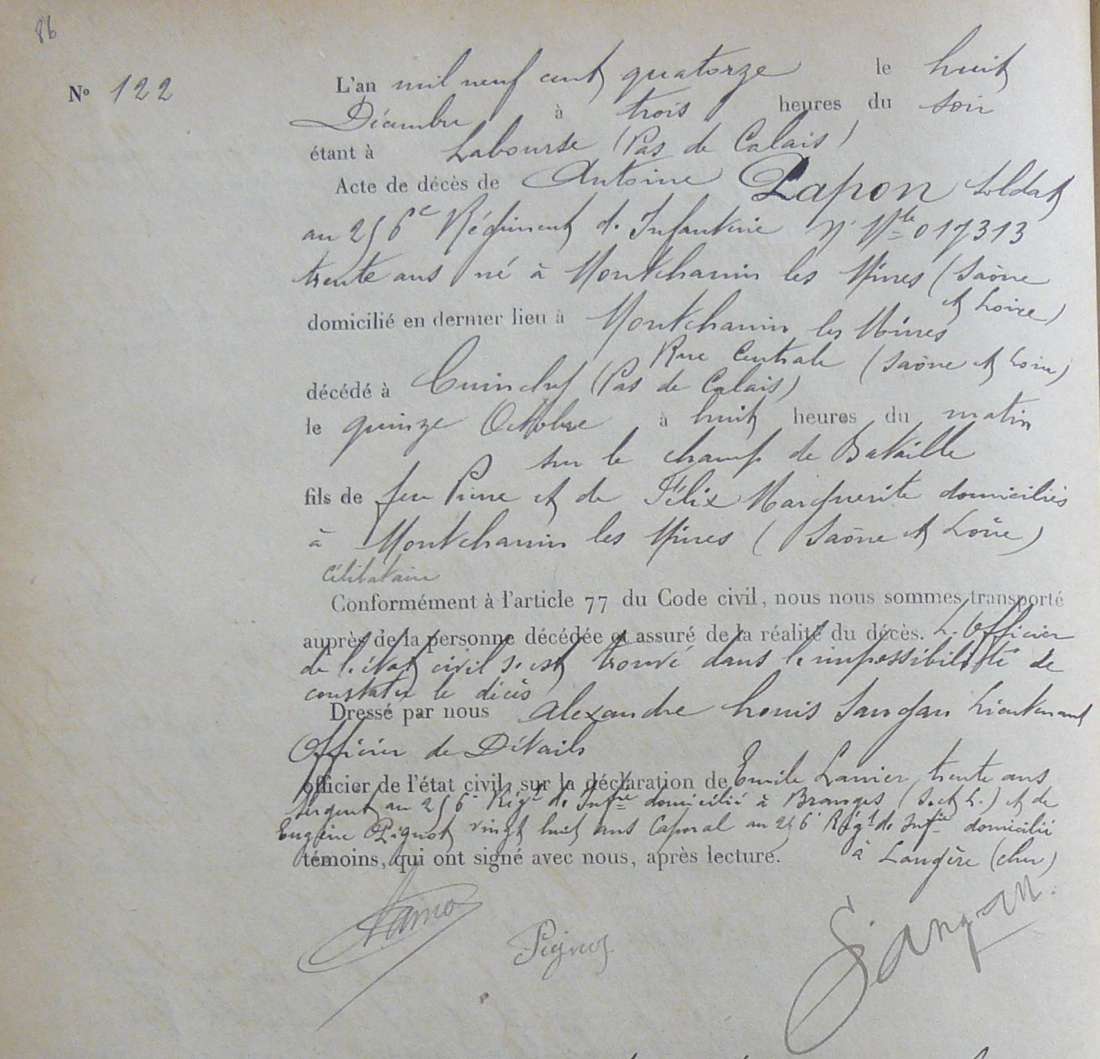 86
N° 122
L'an mil neuf cent quatorze le huit
Décembre à trois heures du soir
étant à Labourse (Pas de Calais)
Acte de décès de Antoine Lapon soldat
au 256e Régiment d'Infanterie N° Mle 017313
trente ans né à Montchanin les Mines (Saône
et Loire)
domicilié en dernier lieu à Montchanin les Mines
Rue Centrale (Saône et Loire)
décédé à Cuinchy (Pas de Calais)
le quinze Octobre à huit heures du matin
sur le champ de Bataille
fils de feu Pierre et de Félix Marguerite domiciliés
à Montchanin les Mines (Saône et Loire)
célibataire
Conformément à l'article 77 du Code civil, nous nous sommes transporté
auprès de la personne décédée et assuré de la réalité du décès. L'Officier
de l'état civil s'est trouvé dans l'impossibilité de
constater le décès
Dressé par nous Alexandre Louis Lieutenant
Officier de Détails
officier de l'état civil, sur la déclaration de Emile Lanier, trente ans
sergent au 256e Régt d'Infrie domicilié à Branges (S. et L.) et de
Eugène Pignot vingt huit ans Caporal au 256e Régt d'Infie domicilié
témoins, qui ont signé avec nous, après lecture. à Laugère (cher)
Pignot